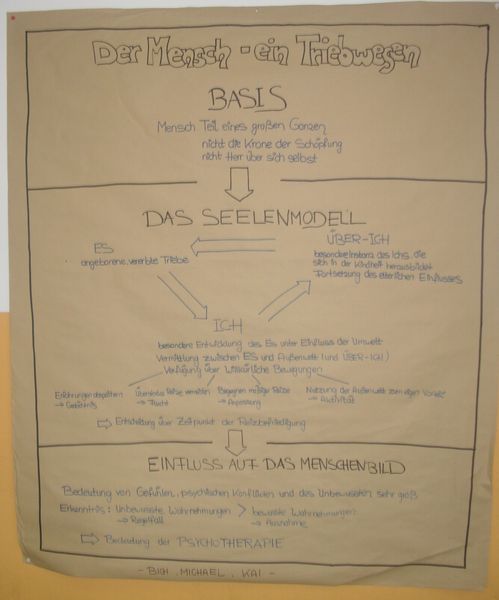 Der Mensch - ein Triebwesen
BASIS
Mensch Teil eines großen Ganzen
nicht die Krone der Schöpfung
nicht Herr über sich selbst
DAS SEELENMODELL
ES
angeborene, vererbte Triebe
ÜBER-ICH
besondere Instanz des Ichs, die
sich in der Kindheit herausbildet
Fortsetzung des elterlichen Einflusses
ICH
besondere Entwicklung des Es unter Einfluss der Umwelt
Vermittlung zwischen ES und Außenwelt (und ÜBER-ICH)
Verfügung über willkürliche Bewegungen
Erfahrungen abspeichern
→ Gedächtnis
Überstarke Reize vermeiden
→ Flucht
Begegnen mäßiger Reize
→ Anpassung
Nutzung der Außenwelt zum eigen. Vorteil
→ Aktivität
⇨ Entscheidung über Zeitpunkt der Reizbefriedigung
EINFLUSS AUF DAS MENSCHENBILD
Bedeutung von Gefühlen, psychischen Konflikten und des Unbewussten sehr groß
Erkenntnis: Unbewusste Wahrnehmungen > bewusste Wahrnehmungen
→ Regelfall → Ausnahme
⇨ Bedeutung der PSYCHOTHERAPIE
- BICH, MICHAEL, KAI -